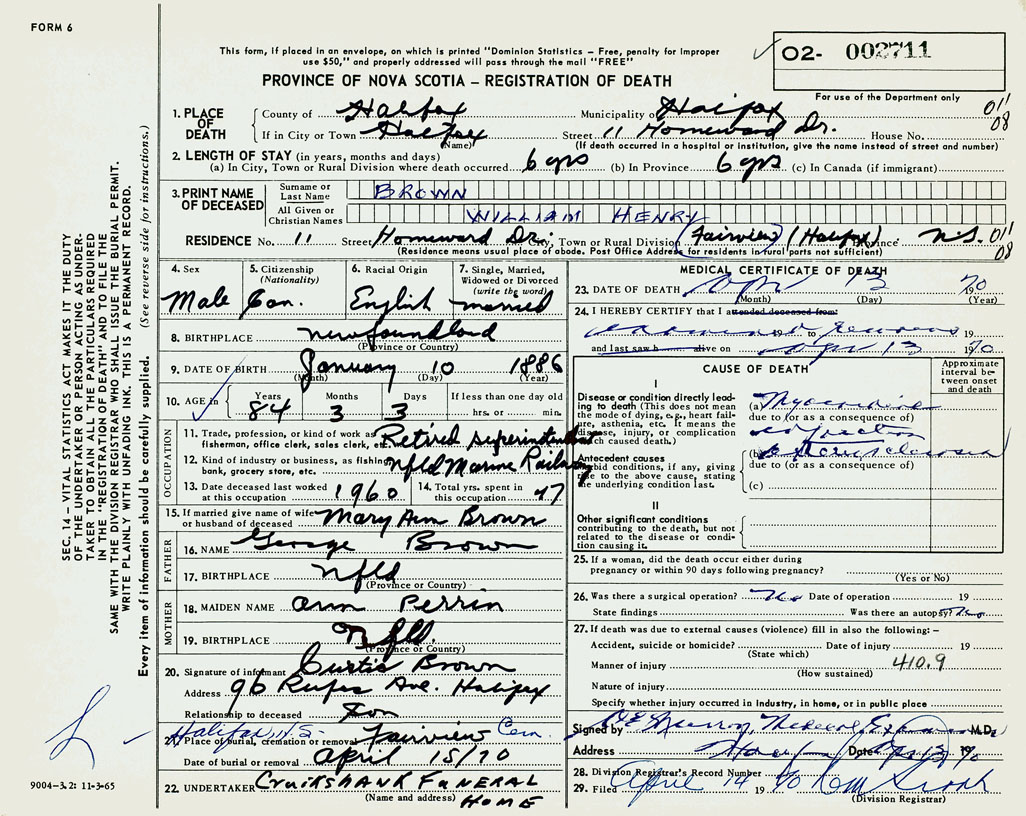 FORM 6
This form, if placed in an envelope, on which is printed "Dominion Statistics – Free, penalty for improper
use $50," and properly addressed will pass through the mail "FREE"
O2- 002711
PROVINCE OF NOVA SCOTIA – REGISTRATION OF DEATH
For use of the Department only
1. PLACE OF DEATH
County of Halifax Municipality of Halifax 011
If in City or Town Halifax (Name) Street 11 Homeward Dr. House No. 08
(If death occurred in a hospital or institution, give the name instead of street and number)
2. LENGTH OF STAY (in years, months and days)
(a) In City, Town or Rural Division where death occurred 6 yrs (b) In Province 6 yrs (c) In Canada (if immigrant)
3. PRINT NAME OF DECEASED
Surname or Last Name BROWN
All Given or Christian Names WILLIAM HENRY
RESIDENCE No. 11 Street Homeward Dr. City, Town or Rural Division (Fairview) (Halifax) Province N.S. 011
(Residence means usual place of abode. Post Office Address for residents in rural parts not sufficient) 08
4. Sex Male
5. Citizenship (Nationality) Can.
6. Racial Origin English
7. Single, Married, Widowed or Divorced (write the word) married
8. BIRTHPLACE newfoundland
(Province or Country)
9. DATE OF BIRTH January 10 1886
(Month) (Day) (Year)
10. AGE in Years 84 Months 3 Days 3 If less than one day old hrs. or min.
OCCUPATION
11. Trade, profession, or kind of work as fisherman, office clerk, sales clerk, etc. Retired superintendent
12. Kind of industry or business, as fishing, bank, grocery store, etc. nfld Marine Railway
13. Date deceased last worked at this occupation 1960
14. Total yrs. spent in this occupation 47
15. If married give name of wife or husband of deceased Mary Ann Brown
FATHER
16. NAME George Brown
17. BIRTHPLACE nfld
(Province or Country)
MOTHER
18. MAIDEN NAME Ann Perrin
19. BIRTHPLACE nfld.
(Province or Country)
20. Signature of informant Curtis Brown
Address 96 Rufus Ave. Halifax
Relationship to deceased Son
Halifax N.S.
21. Place of burial, cremation or removal Fairview Cem.
Date of burial or removal April 15/70
22. UNDERTAKER CRUIKSHANK FUNERAL HOME
(Name and address)
MEDICAL CERTIFICATE OF DEATH
23. DATE OF DEATH Apr 13 1970
(Month) (Day) (Year)
24. I HEREBY CERTIFY that I attended deceased from:
examined remains 19 to 19
and last saw h alive on Apr 13 1970
CAUSE OF DEATH
Approximate interval between onset and death
I
Disease or condition directly leading to death (This does not mean the mode of dying, e.g., heart failure, asthenia, etc. It means the disease, injury, or complication which caused death.)
(a) Myocardial
due to (or as a consequence of)
infarction
Antecedent causes
Morbid conditions, if any, giving rise to the above cause, stating the underlying condition last.
(b)
due to (or as a consequence of)
(c)
II
Other significant conditions
contributing to the death, but not related to the disease or condition causing it.
25. If a woman, did the death occur either during pregnancy or within 90 days following pregnancy?
(Yes or No)
26. Was there a surgical operation? No Date of operation 19
State findings Was there an autopsy? no
27. If death was due to external causes (violence) fill in also the following: –
Accident, suicide or homicide? Date of injury 19
(State which)
Manner of injury 410.9
(How sustained)
Nature of injury
Specify whether injury occurred in industry, in home, or in public place
Signed by Murray Medical Examiner M.D.
Address Date Apr 13 1970
28. Division Registrar's Record Number
29. Filed April 14 1970
(Division Registrar)
SEC. 14 – VITAL STATISTICS ACT MAKES IT THE DUTY
OF THE UNDERTAKER OR PERSON ACTING AS UNDER-
TAKER TO OBTAIN ALL THE PARTICULARS REQUIRED
IN THE "REGISTRATION OF DEATH" AND TO FILE THE
SAME WITH THE DIVISION REGISTRAR WHO SHALL ISSUE THE BURIAL PERMIT.
WRITE PLAINLY WITH UNFADING INK. THIS IS A PERMANENT RECORD.
Every item of information should be carefully supplied. (See reverse side for instructions.)
9004-3.2: 11-3-65